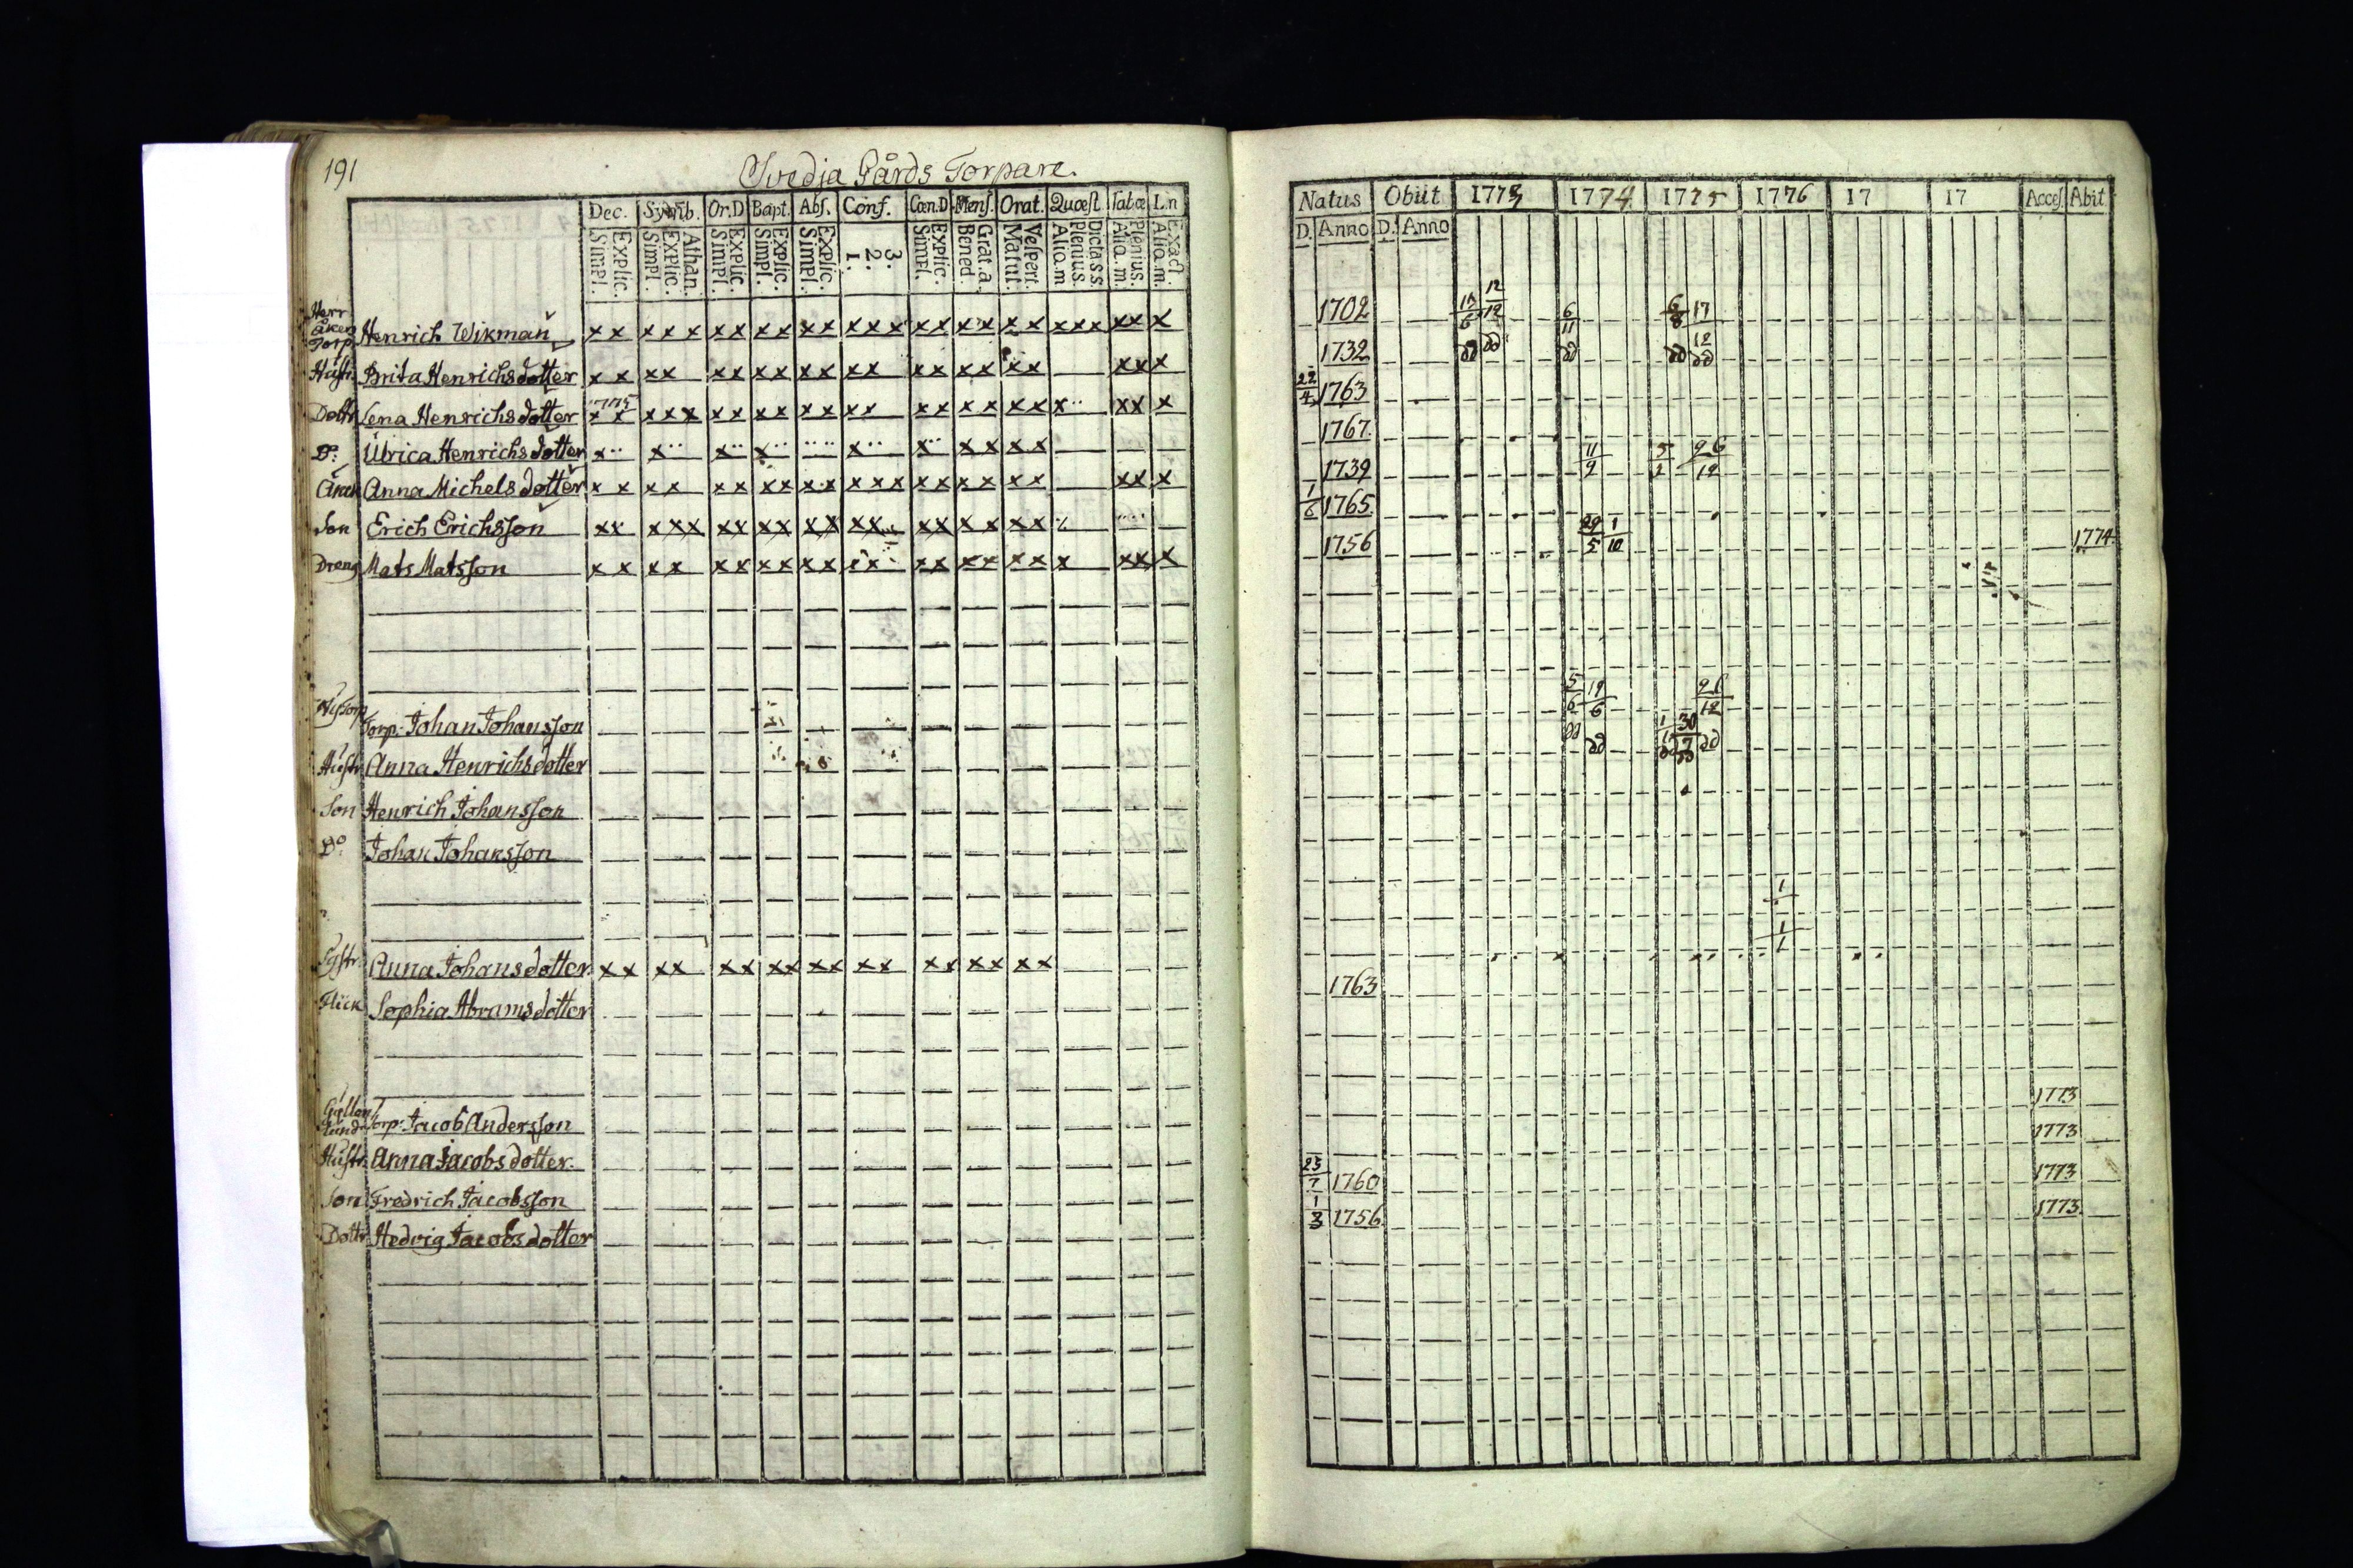 191
Svedja Gårds Torpare.
Dec. Symb. Or.D Bapt. Abs. Conf. Cœn.D Mens. Orat. Quæst Tabæ L.n
Simpl. Explic. Simpl. Explic. Athan. Simpl. Explic. Simpl. Explic. Simpl. Explic. 1. 2. 3. Simpl. Explic. Bened. Grat.a. Matut. Vespert. Aliq.m Plenius. Dicta s.s. Aliq.m. Plenius. Aliq.m. Exact.
Henrich Wikman x x x x x x x x x x x x x x x x x x x x x x x x x x x
Hustr. Brita Henrichsdotter x x x x x x x x x x x x x x x x x x x x x
1775
Dottr Lena Henrichsdotter x x x x x x x x x x x x x x x x x x x x x x x
Do. Ulrica Henrichsdotter x x x x x x x x x x
Anna Michelsdotter x x x x x x x x x x x x x x x x x x x x x x
Son Erich Erichsson x x x x x x x x x x x x x x x x x x x
Dreng Mats Matsson x x x x x x x x x x x x x x x x x x x x x x
Torp. Johan Johansson
Hustr. Anna Henrichsdotter
Son Henrich Johansson
Do. Johan Johansson
Anna Johansdotter x x x x x x x x x x x x x x x x x x
Flick Sophia Abramsdotter
Torp. Jacob Andersson
Hustr. Anna Jacobsdotter.
Son Fredrich Jacobsson
Dottr Hedvig Jacobsdotter
Natus Obiit 1773 1774 1775 1776 17 17 Acces. Abit
D. Anno D. Anno
1702 12/12 6/11 6/8 17/12
1732 dd dd dd dd dd
22/4 1763
1767
1739 11/9 5/2 26/12
1/6 1765
1756 29/5 1/10 1774
5/6 19/6 26/12
dd dd 30/7 dd
1
1/1
1763
1773
1773
23/7 1760 1773
1/3 1756 1773